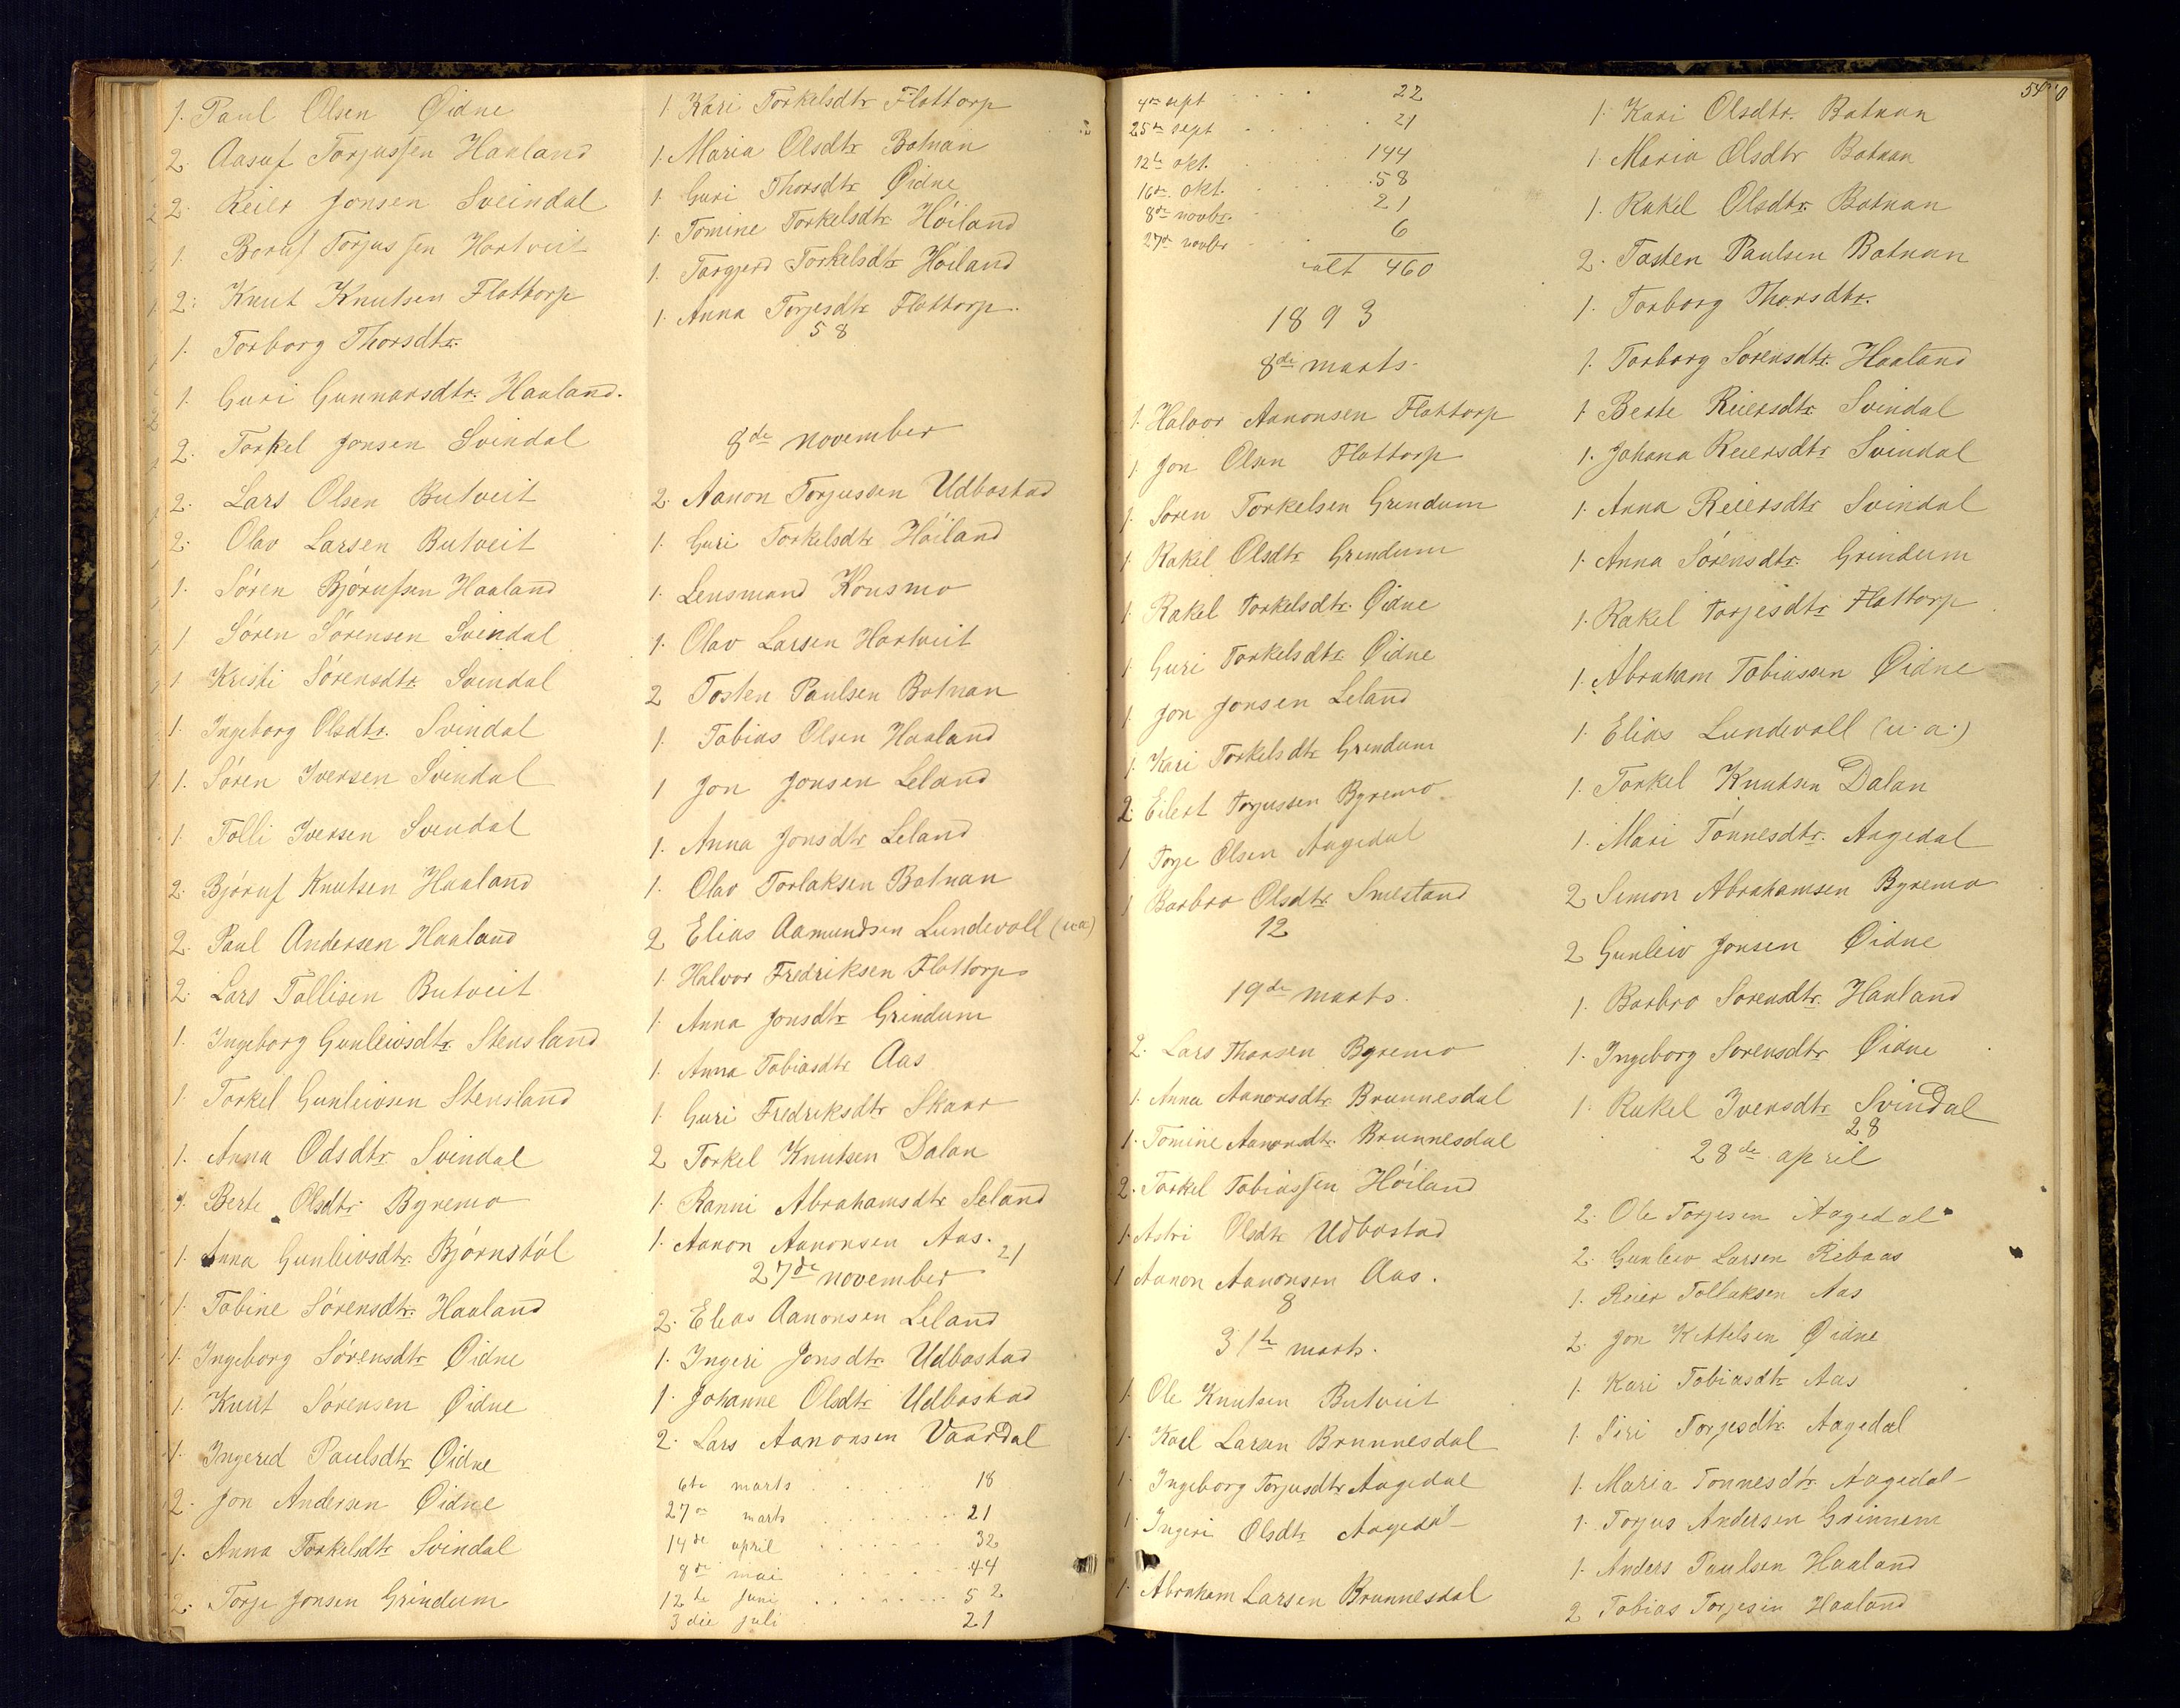 1. Paul Olsen Øidne
2. Aasuf Torjussen Haaland
2. Reier Jonsen Sveindal
1. Boruf Torjussen Hortveit
2. Knut Knutsen Flottorp
1. Torborg Thorsdtr.
1. Guri Gunnarsdtr. Haaland.
2. Torkel Jonsen Svindal
2. Lars Olsen Butveit
2. Olav Larsen Butveit
1. Sören Björufsen Haaland
1 Sören Sörensen Svindal
1 Kristi Sörensdtr Svindal
1. Ingeborg Olsdtr. Svindal
1. Sören Iversen Svindal
1. Tolli Iversen Svindal
2. Björuf Knutsen Haaland
2. Paul Andersen Haaland
2. Lars Tollisen Butveit
1. Ingeborg Gunleivsdtr. Stensland
1. Torkel Gunleivsen Stensland
1. Anna Odsdtr. Svindal
1. Berte Olsdtr. Byremo
1. Anna Gunleivsdtr. Björnstöl
1. Tobine Sörensdtr. Haaland
1. Ingeborg Sörensdtr Øidne
1. Knut Sörensen Øidne
1. Ingered Paulsdtr Øidne
2. Jon Andersen Øidne
1. Anna Torkelsdtr Svindal
2. Torje Jonsen Grindum
1. Kari Torkelsdtr Flottorp
1. Maria Olsdtr Botnan
1. Guri Thorsdtr Øidne
1. Tomine Torkelsdtr. Höiland
1. Torgjerd Torkelsdtr Höiland
1. Anna Torjesdtr Flottorp.
58
8de november
2. Aanon Torjussen Udbostad
1. Guri Torkelsdtr Höiland
1. Lensmand Konsmo
1. Olav Larsen Hortveit
2 Tosten Paulsen Botnan
1. Tobias Olsen Haaland
1 Jon Jonsen Leland
1. Anna Jonsdtr Leland
1. Olav Torlaksen Botnan
2 Elias Aamundsen Lundevoll (u.a)
1. Halvor Fredriksen Flottorp
1. Anna Jonsdtr Grindum
1. Anna Tobiasdtr Aas
1. Guri Fredriksdtr Skaar
2 Torkel Knutsen Dalan
1. Ranni Abrahamsdtr Seland
1. Aanon Aanonsen Aas. 21
27de november
2. Elias Aanonsen Leland
1. Ingeri Jonsdtr. Udbostad
1. Johanne Olsdtr Udbostad
2. Lars Aanonsen Vaardal
6te marts . . . . . . 18
27de marts . . . . . . . 21
14de april . . . . . . . 32
9de mai . . . . . . 44
12te juni . . . . . . . 52
3die juli 21
4de sept . . . 22
25de sept . . . . . 21
12te okt. . . . 144
16de okt. . . . 58
8de novbr. . . 21
27de novbr . . . 6
ialt 460
1893
8de marts.
1. Halvor Aanonsen Flottorp
1. Jon Olsen Flottorp
1. Sören Torkelsen Grindum
1 Rakel Olsdtr Grindum
1 Rakel Torkelsdtr. Øidne
1 Guri Torkelsdtr. Øidne
1 Jon Jonsen Leland
1. Kari Torkelsdtr Grindum
2. Eilert Torjussen Byremo
1 Torje Olsen Aagedal
1 Barbro Olsdtr. Smestand
12
19de marts.
2. Lars Thorsen Byremo
1. Anna Aanonsdtr. Brunnesdal
1. Tomine Aanonsdtr. Brunnesdal
2. Torkel Tobiassen Höiland
1. Astri Olsdtr Udbostad
1 Aanon Aanonsen Aas.
8
31te marts.
1. Ole Knutsen Butveit
1. Karl Larsen Brunnesdal
1. Ingeborg Torjusdtr Aagedal
1. Ingeri Olsdtr Aagedal
1. Abraham Larsen Brunnesdal
1. Kari Olsdtr. Botnan
1. Maria Olsdtr Botnan
1. Rakel Olsdtr. Botnan
2. Tosten Paulsen Botnan
1. Torborg Thorsdtr.
1. Torborg Sörensdtr. Haaland
1 Berte Reiersdtr Svindal
1. Johana Reiersdtr Svindal
1. Anna Reiersdtr Svindal
1. Anna Sörensdtr. Grindum
1. Rakel Torjesdtr Flottorp
1. Abraham Tobiassen Øidne
1. Elias Lundevoll (u.a.)
1. Torkel Knutsen Dalan
1. Mari Tönnesdtr. Aagedal
2 Simon Abrahamsen Byremo
2 Gunleiv Jonsen Øidne
1. Barbro Sorensdtr. Haaland
1. Ingeborg Sorensdtr Øidne
1. Rakel Iversdtr Svindal
28
28de april
2. Ole Torjesen Aagedal
2. Gunleiv Larsen Ribaas
1. Reier Tollaksen Aas
2. Jon Kittelsen Øidne
1. Kari Tobiasdtr Aas
1. Siri Torjesdtr. Aagedal
1. Maria Tonnesdtr. Aagedal
1. Torjus Andersen Grinnem
1. Anders Paulsen Haaland
2 Tobias Torjesen Haaland